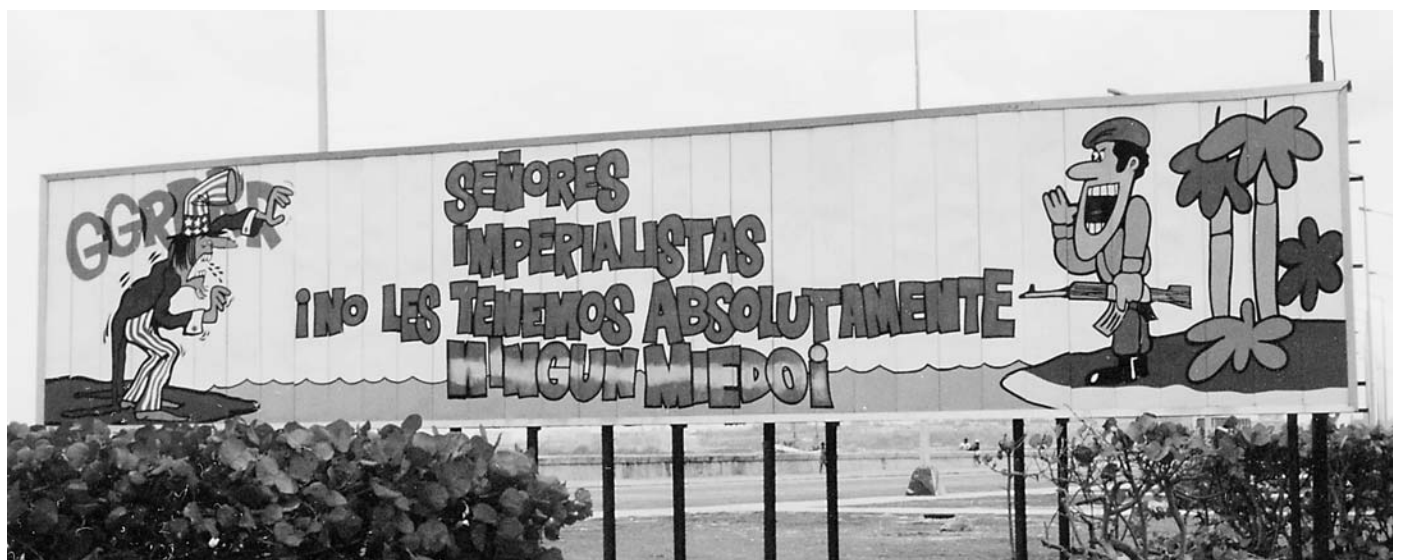 GGRRRR
SEÑORES
IMPERIALISTAS
¡NO LES TENEMOS ABSOLUTAMENTE
NINGUN MIEDO¡